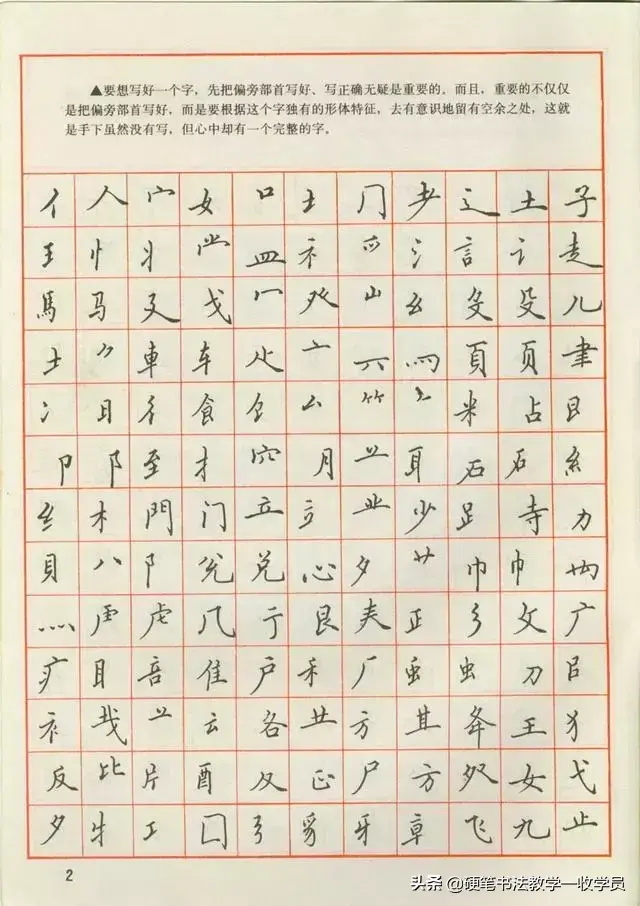 ▲要想写好一个字，先把偏旁部首写好、写正确无疑是重要的。而且，重要的不仅仅
是把偏旁部首写好，而是要根据这个字独有的形体特征，去有意识地留有空余之处，这就
是手下虽然没有写，但心中却有一个完整的字。
亻 人 宀 女 口 土 冂 耂 辶 土 子
王 忄 丬 龸 皿 礻 氵 言 讠 走
馬 马 廴 戈 冖 癶 山 幺 殳 殳 儿
士 車 车 亠 罒 頁 页 聿
冫 日 彳 食 饣 厶 ⺮ 米 占 日
卩 阝 至 扌 穴 月 耳 石 石 糹
纟 木 門 门 立 立 业 少 𧾷 寺 力
貝 八 阝 兑 心 夕 艹 巾 巾
灬 虍 几 亍 艮 正 彡 文 广
疒 目 咅 隹 户 禾 厂 虫 虫 刀
衤 云 各 方 其 夅 王 犭
反 比 片 酉 及 正 尸 方 女 弋
夕 牛 工 囗 弓 豸 牙 章 飞 九 止
2
头条 @硬笔书法教学一收学员